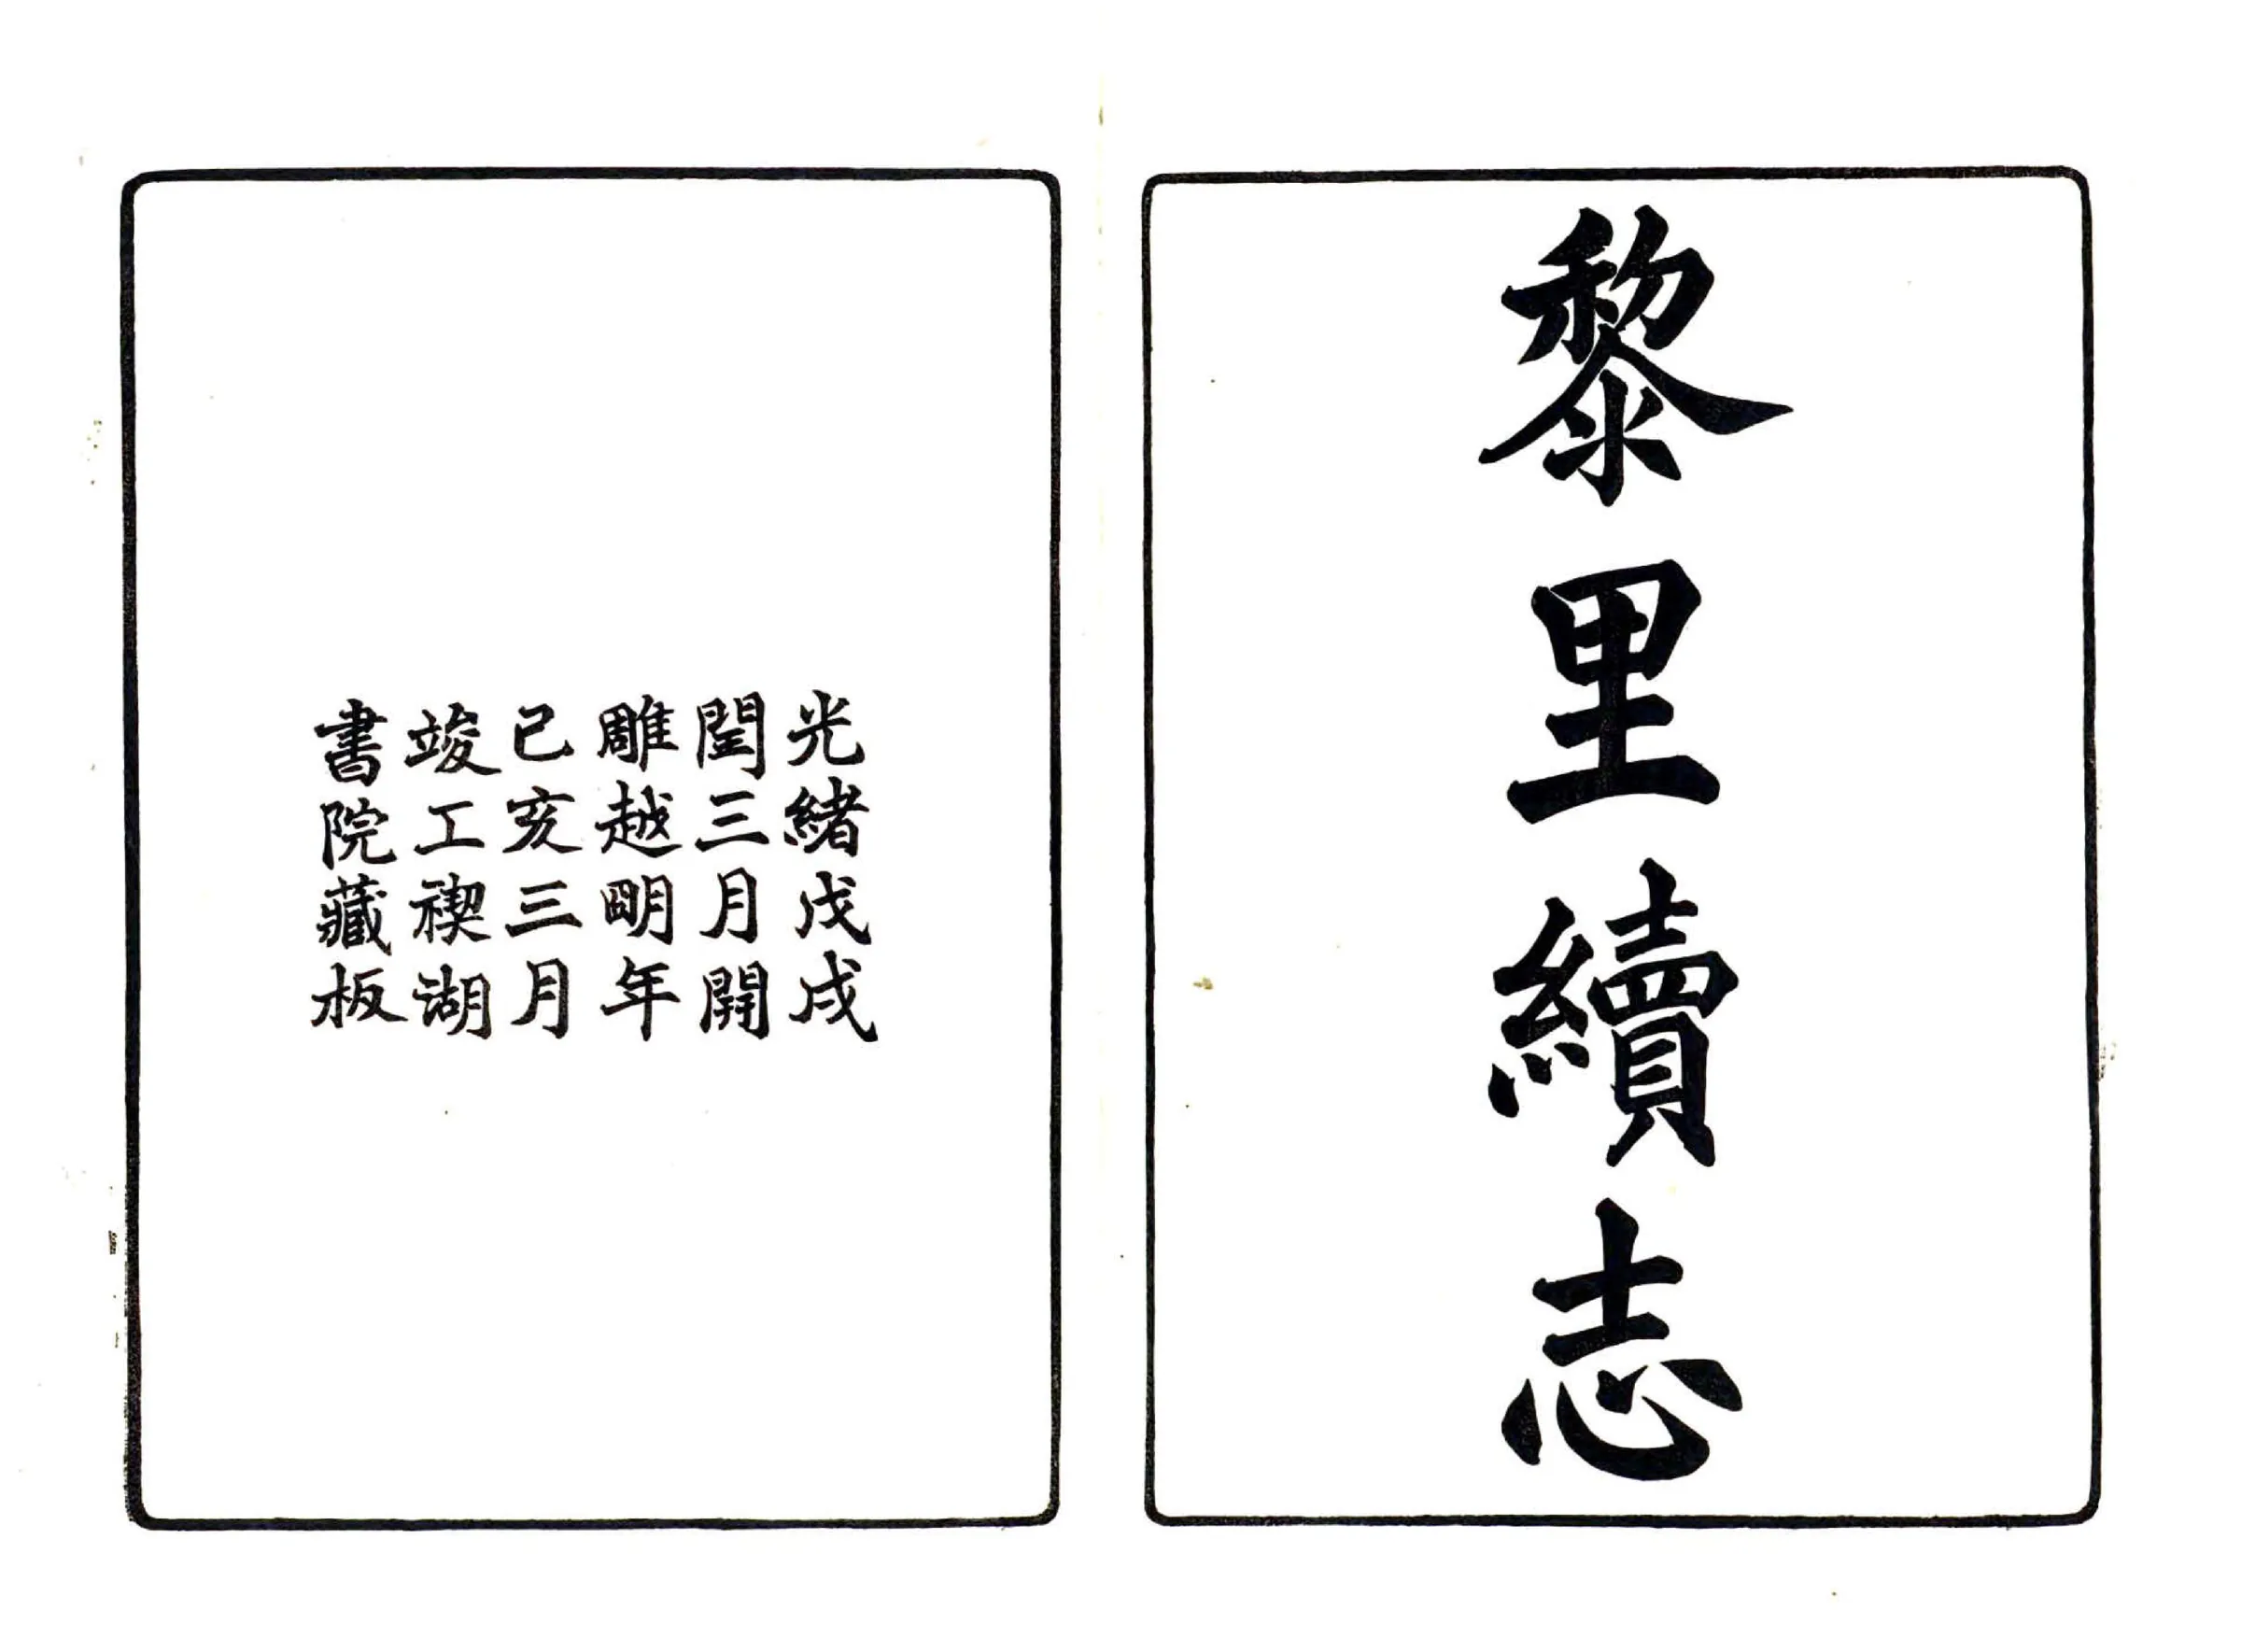 黎里續志
光緒戊戌
閏三月開
雕越明年
己亥三月
竣工禊湖
書院藏板